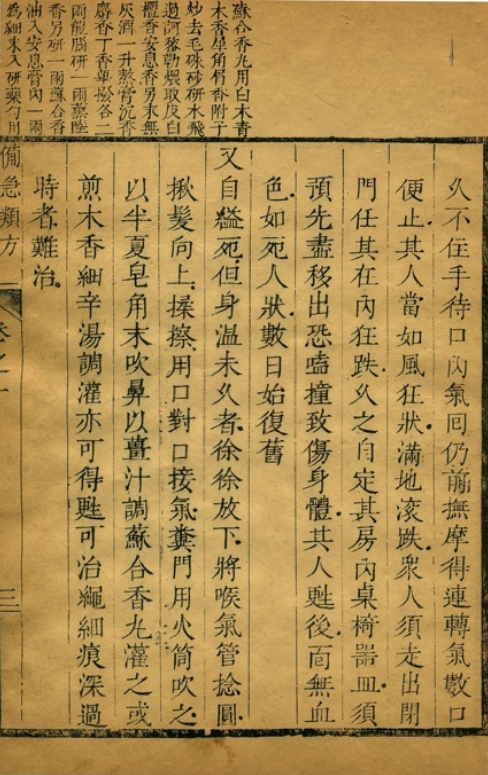 蘇合香丸用白木青
木香犀角香附子
炒去毛硃砂研水飛
過訶黎勒煨取皮白
檀香安息香另末無
灰酒一升熬膏沉香
麝香丁香蓽撥各二
兩龍腦研一兩薰陸
香另研一兩蘇合香
油入安息膏內一兩
為細末入研藥勻用
久不住手待口內氣回仍前撫摩得連轉氣數口
便止其人當如風狂狀滿地滚跌衆人須走出閉
門任其在內狂跌久之自定其房內桌椅器皿須
預先盡移出恐嗑撞致傷身體其人甦後面無血
色如死人狀數日始復舊
又自縊死但身温未久者徐徐放下將喉氣管捻圓
揪髮向上揉擦用口對口接氣糞門用火筒吹之
以半夏皂角末吹鼻以薑汁調蘇合香丸灌之或
煎木香細辛湯調灌亦可得甦可治繩細痕深過
時者難治
備急類方
卷之一
三